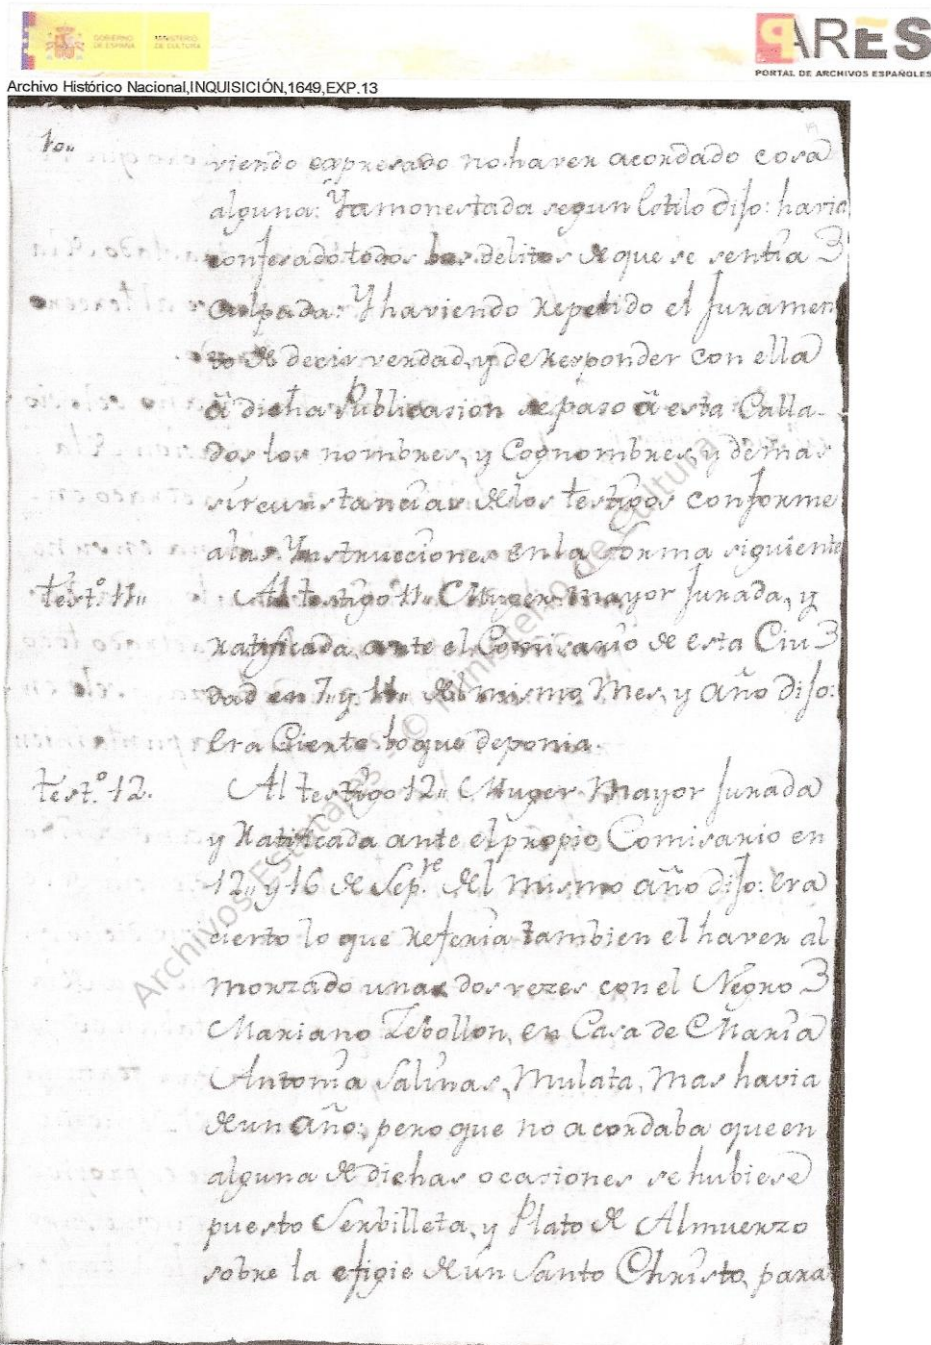 GOBIERNO DE ESPAÑA
MINISTERIO DE CULTURA
PARES
PORTAL DE ARCHIVOS ESPAÑOLES
Archivo Histórico Nacional,INQUISICIÓN,1649,EXP.13
19
viendo expresado no haver acordado cosa
alguna: Y amonestada segun Estilo dijo: havia
confesado todos los delitos de que se sentia
culpada: Y haviendo repetido el Juramen
to de decir verdad, y de responder con ella
â dicha Publicasion se paso â esta Calla-
dos los nombres, y Cognombres, y demas
sircunstancias de los testigos conforme
a las Ynstrucciones en la forma siguiente
test.º 11,, Al testigo 11,, Muger mayor Jurada, y
ratificada ante el Comisario de esta Ciu
dad en 7,, y 11,, del mismo Mes, y año dijo:
Era Cierto lo que deponia.
test.º 12. Al testigo 12,, Muger Mayor Jurada
y ratificada ante el propio Comisario en
12,, y 16 de Sep.re del mismo año dijo: Era
cierto lo que referia tambien el haver al
morzado una dos vezes con el Negro
Mariano Zebollon, en Casa de Maria
Antonia Salinas, Mulata, mas havia
de un año: pero que no acordaba que en
alguna de dichas ocasiones se hubiese
puesto Serbilleta, y Plato de Almuerzo
sobre la efigie de un Santo Christo, para
Archivos Estatales © Ministerio de Cultura